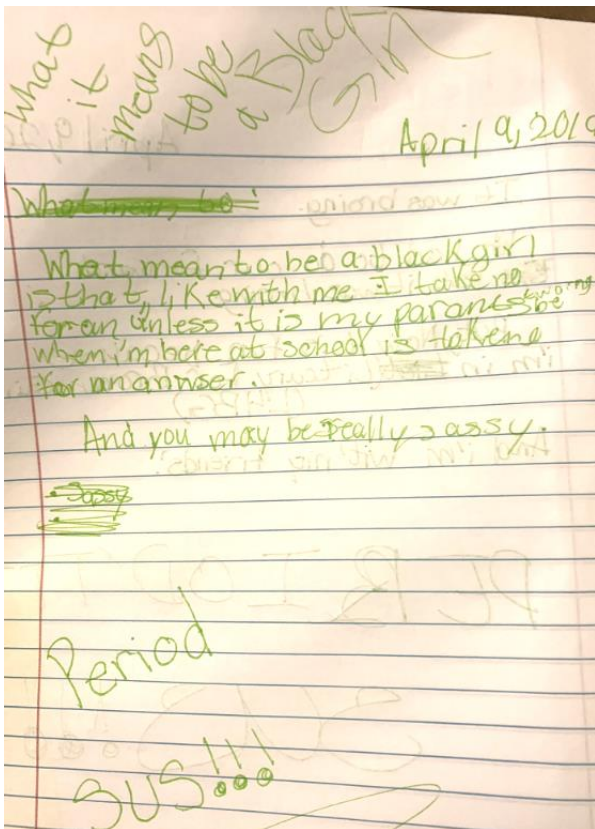 What
it
means
to be
a Black
Girl
April 9, 2019
What means to
What mean to be a black girl
is that, like with me I take no
for an unless it is my parants
when i'm here at school is take no
for an anwser.
And you may be really sassy.
Sassy
Period
SUS!!!